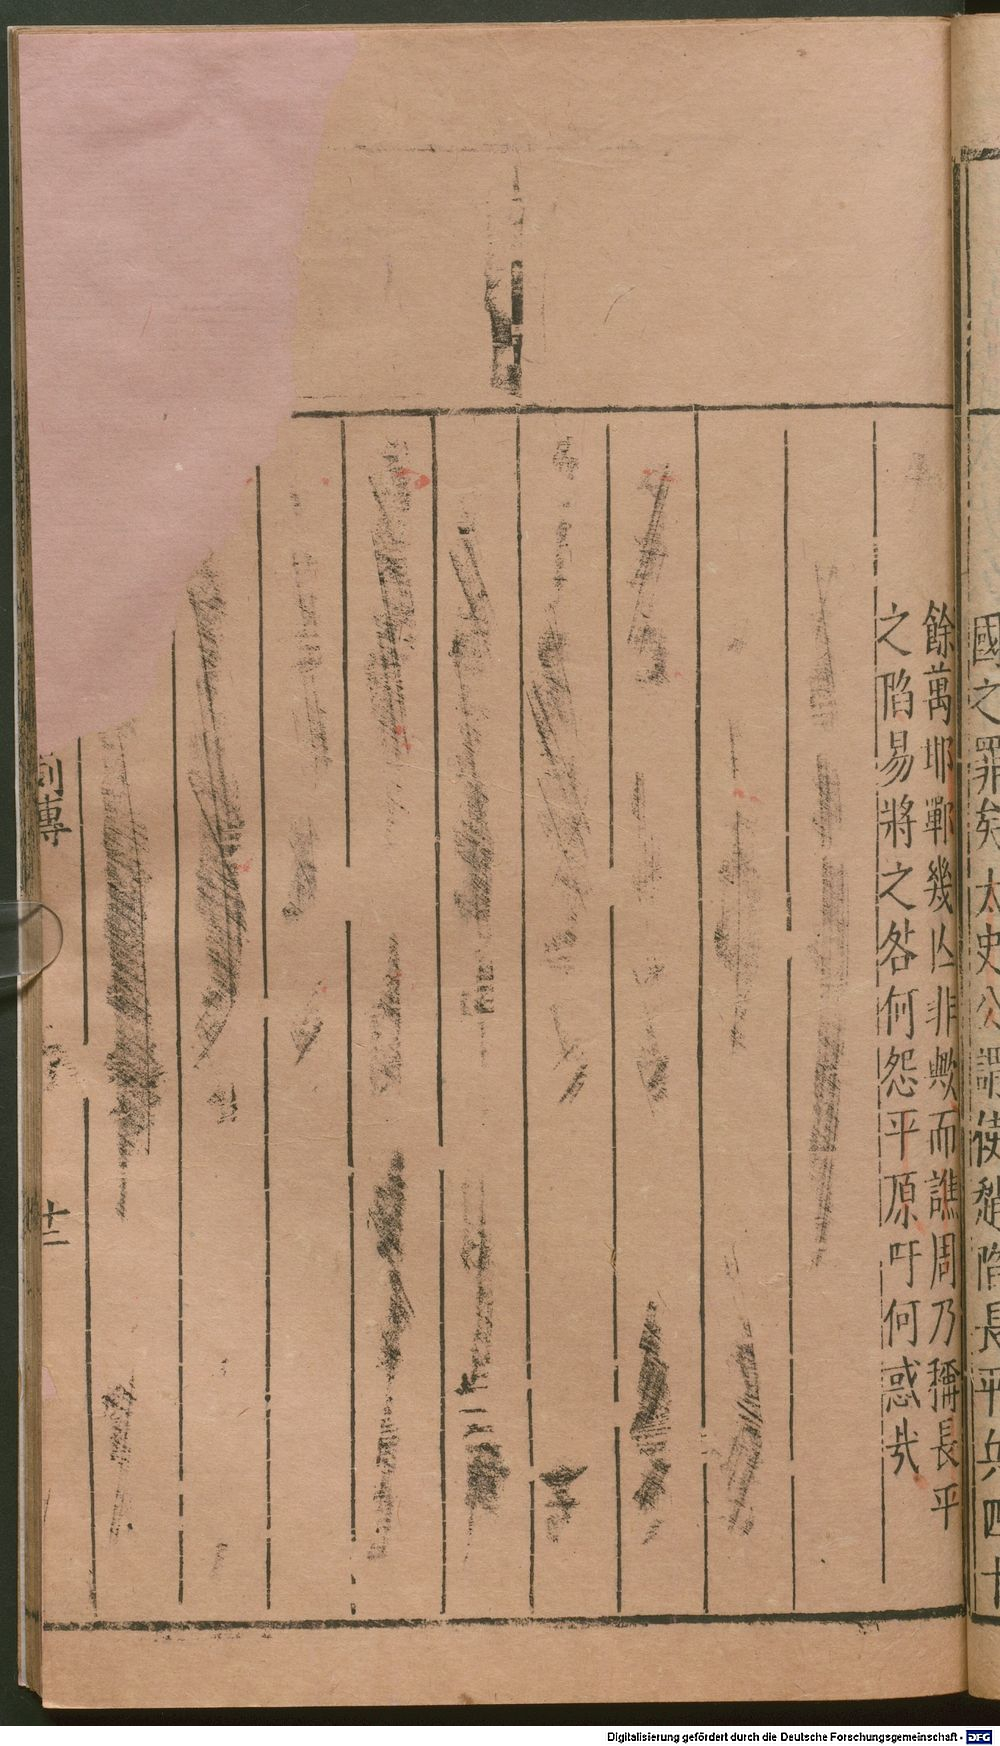 國之罪矣太史公謂使趙陷長平兵四十
餘萬邯鄲幾亾非歟而譙周乃稱長平
之陷易將之咎何怨平原吁何惑㢤
列傳
十二
Digitalisierung gefördert durch die Deutsche Forschungsgemeinschaft - DFG